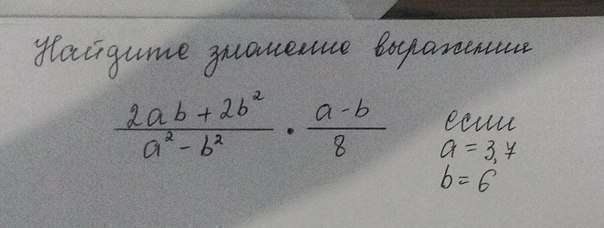 Найдите значение выражения
(2ab + 2b²)/(a² - b²) · (a - b)/8
если
a = 3,7
b = 6